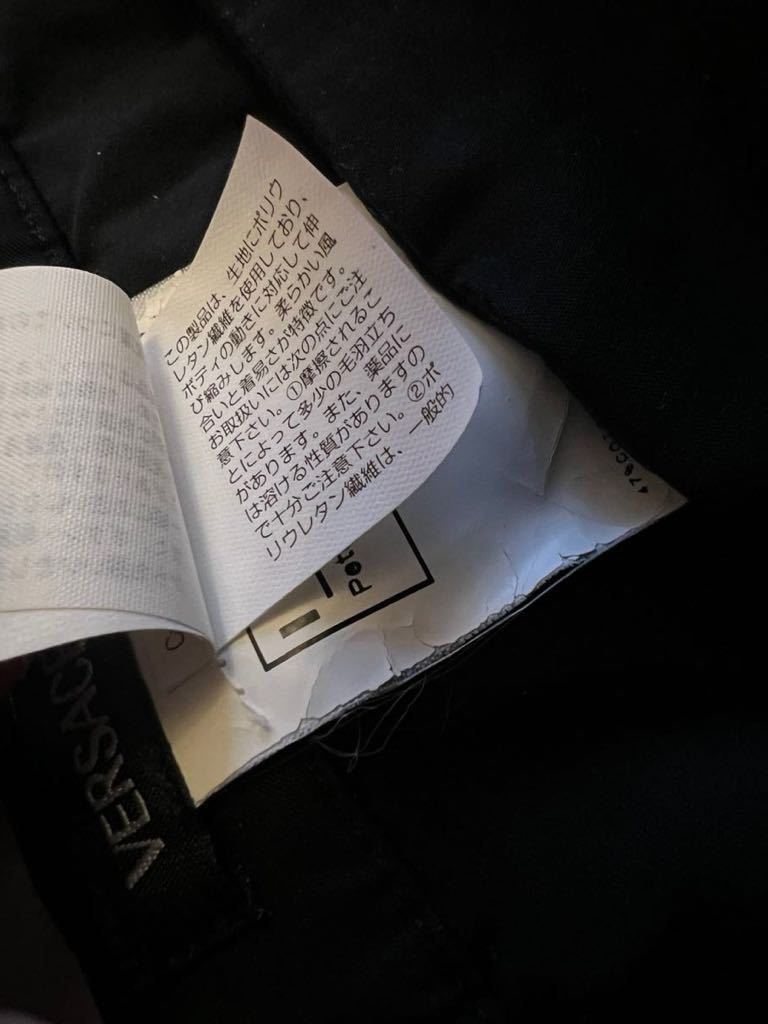 この製品は、生地にポリウ
レタン繊維を使用しており、
ボディの動きに対応して伸
び縮みします。柔らかい風
合いと着易さが特徴です。
お取扱いには次の点にご注
意下さい。①摩擦されるこ
とによって多少の毛羽立ち
があります。また、薬品に
は溶ける性質がありますの
で十分ご注意下さい。②ポ
リウレタン繊維は、一般的
VERSAC